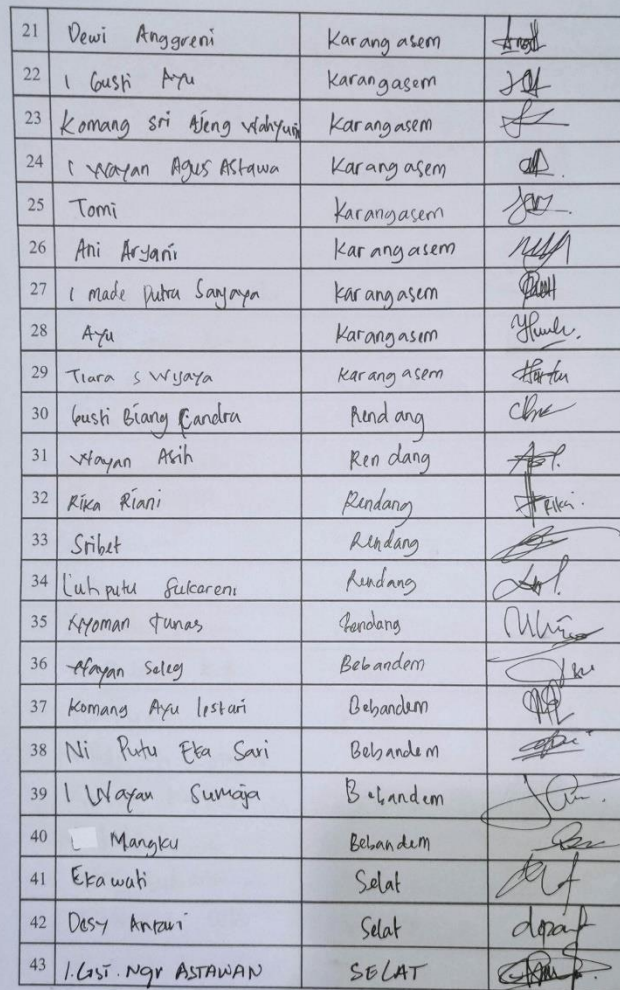 21 Dewi Anggreni Karangasem
22 I Gusti Ayu Karangasem
23 Komang Sri Ajeng Wahyuni Karangasem
24 I Wayan Agus Astawa Karangasem
25 Tomi Karangasem
26 Ani Aryani Karangasem
27 I Made Putra Sanjaya Karangasem
28 Ayu Karangasem
29 Tiara S Wijaya Karangasem
30 Gusti Biang Candra Rendang
31 Wayan Asih Rendang
32 Rika Riani Rendang Rika
33 Sribet Rendang
34 Luh putu Sukareni Rendang
35 Nyoman Tunas Rendang
36 Wayan Seleg Bebandem
37 Komang Ayu lestari Bebandem
38 Ni Putu Eka Sari Bebandem
39 I Wayan Sumaja Bebandem
40 Mangku Bebandem
41 Ekawati Selat
42 Desy Antari Selat
43 I.GST.Ngr ASTAWAN SELAT